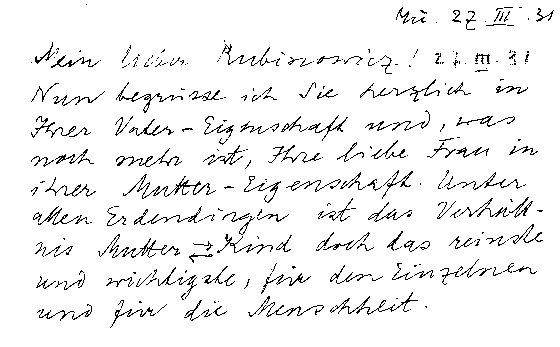 Mü. 27.III.31
Mein lieber Rubinowicz! 27.III.31
Nun begrüsse ich Sie herzlich in
Ihrer Vater-Eigenschaft und, was
noch mehr ist, Ihre liebe Frau in
ihrer Mutter-Eigenschaft. Unter
allen Erdendingen ist das Verhält-
nis Mutter ⇄ Kind doch das reinste
und wichtigste, für den Einzelnen
und für die Menschheit.